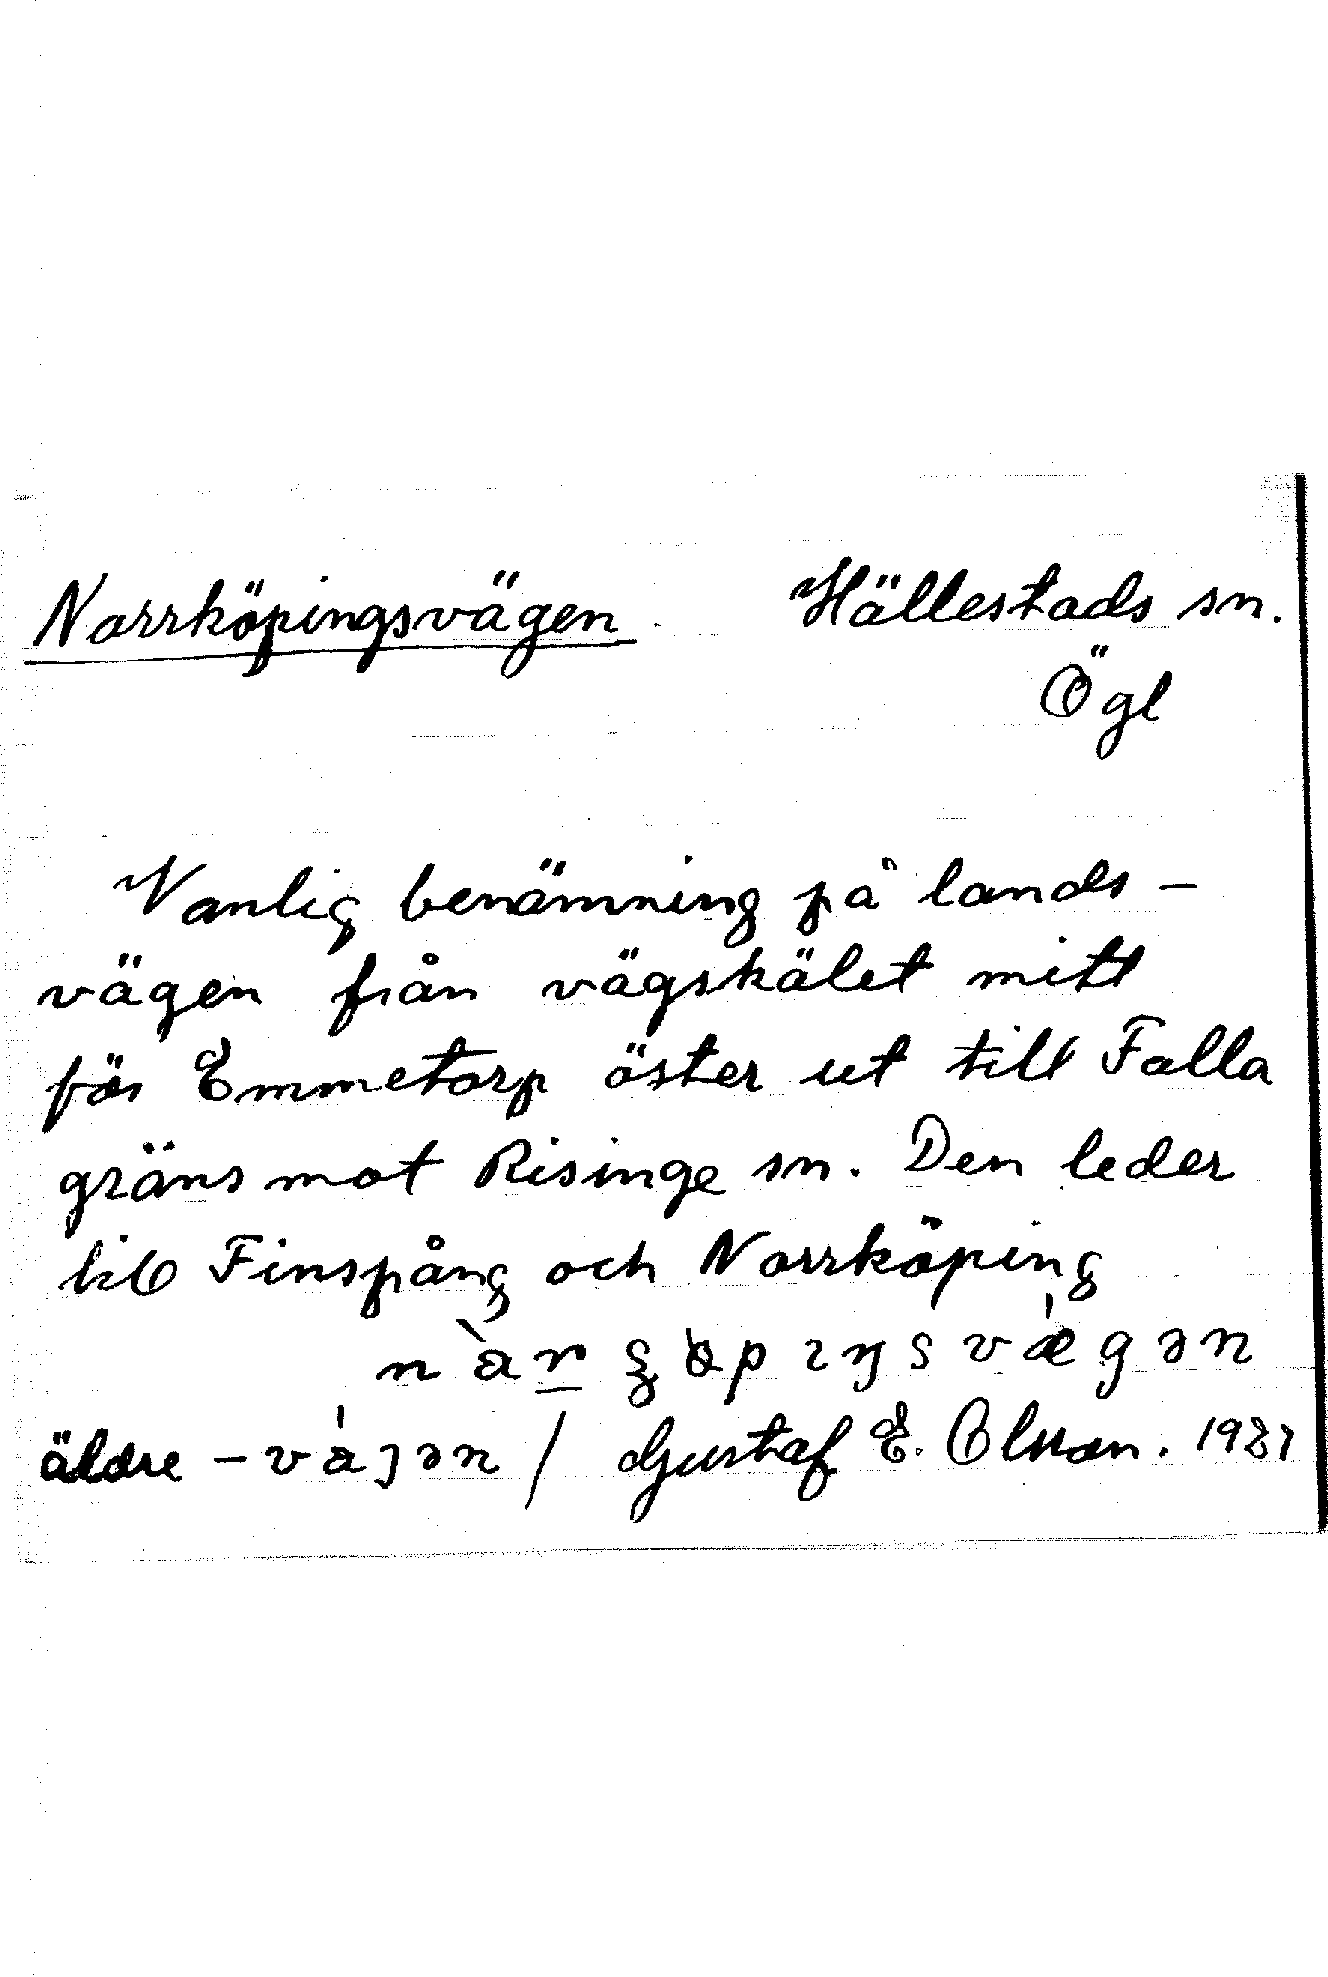 Norrköpingsvägen Hällestads sn.
Ögl
Vanlig benämning på lands-
vägen från vägskälet mitt
för Emmetorp öster ut till Falla
gräns mot Risinge sn. Den leder
till Finspång och Norrköping
äldre - / Gustaf E. Olsson.